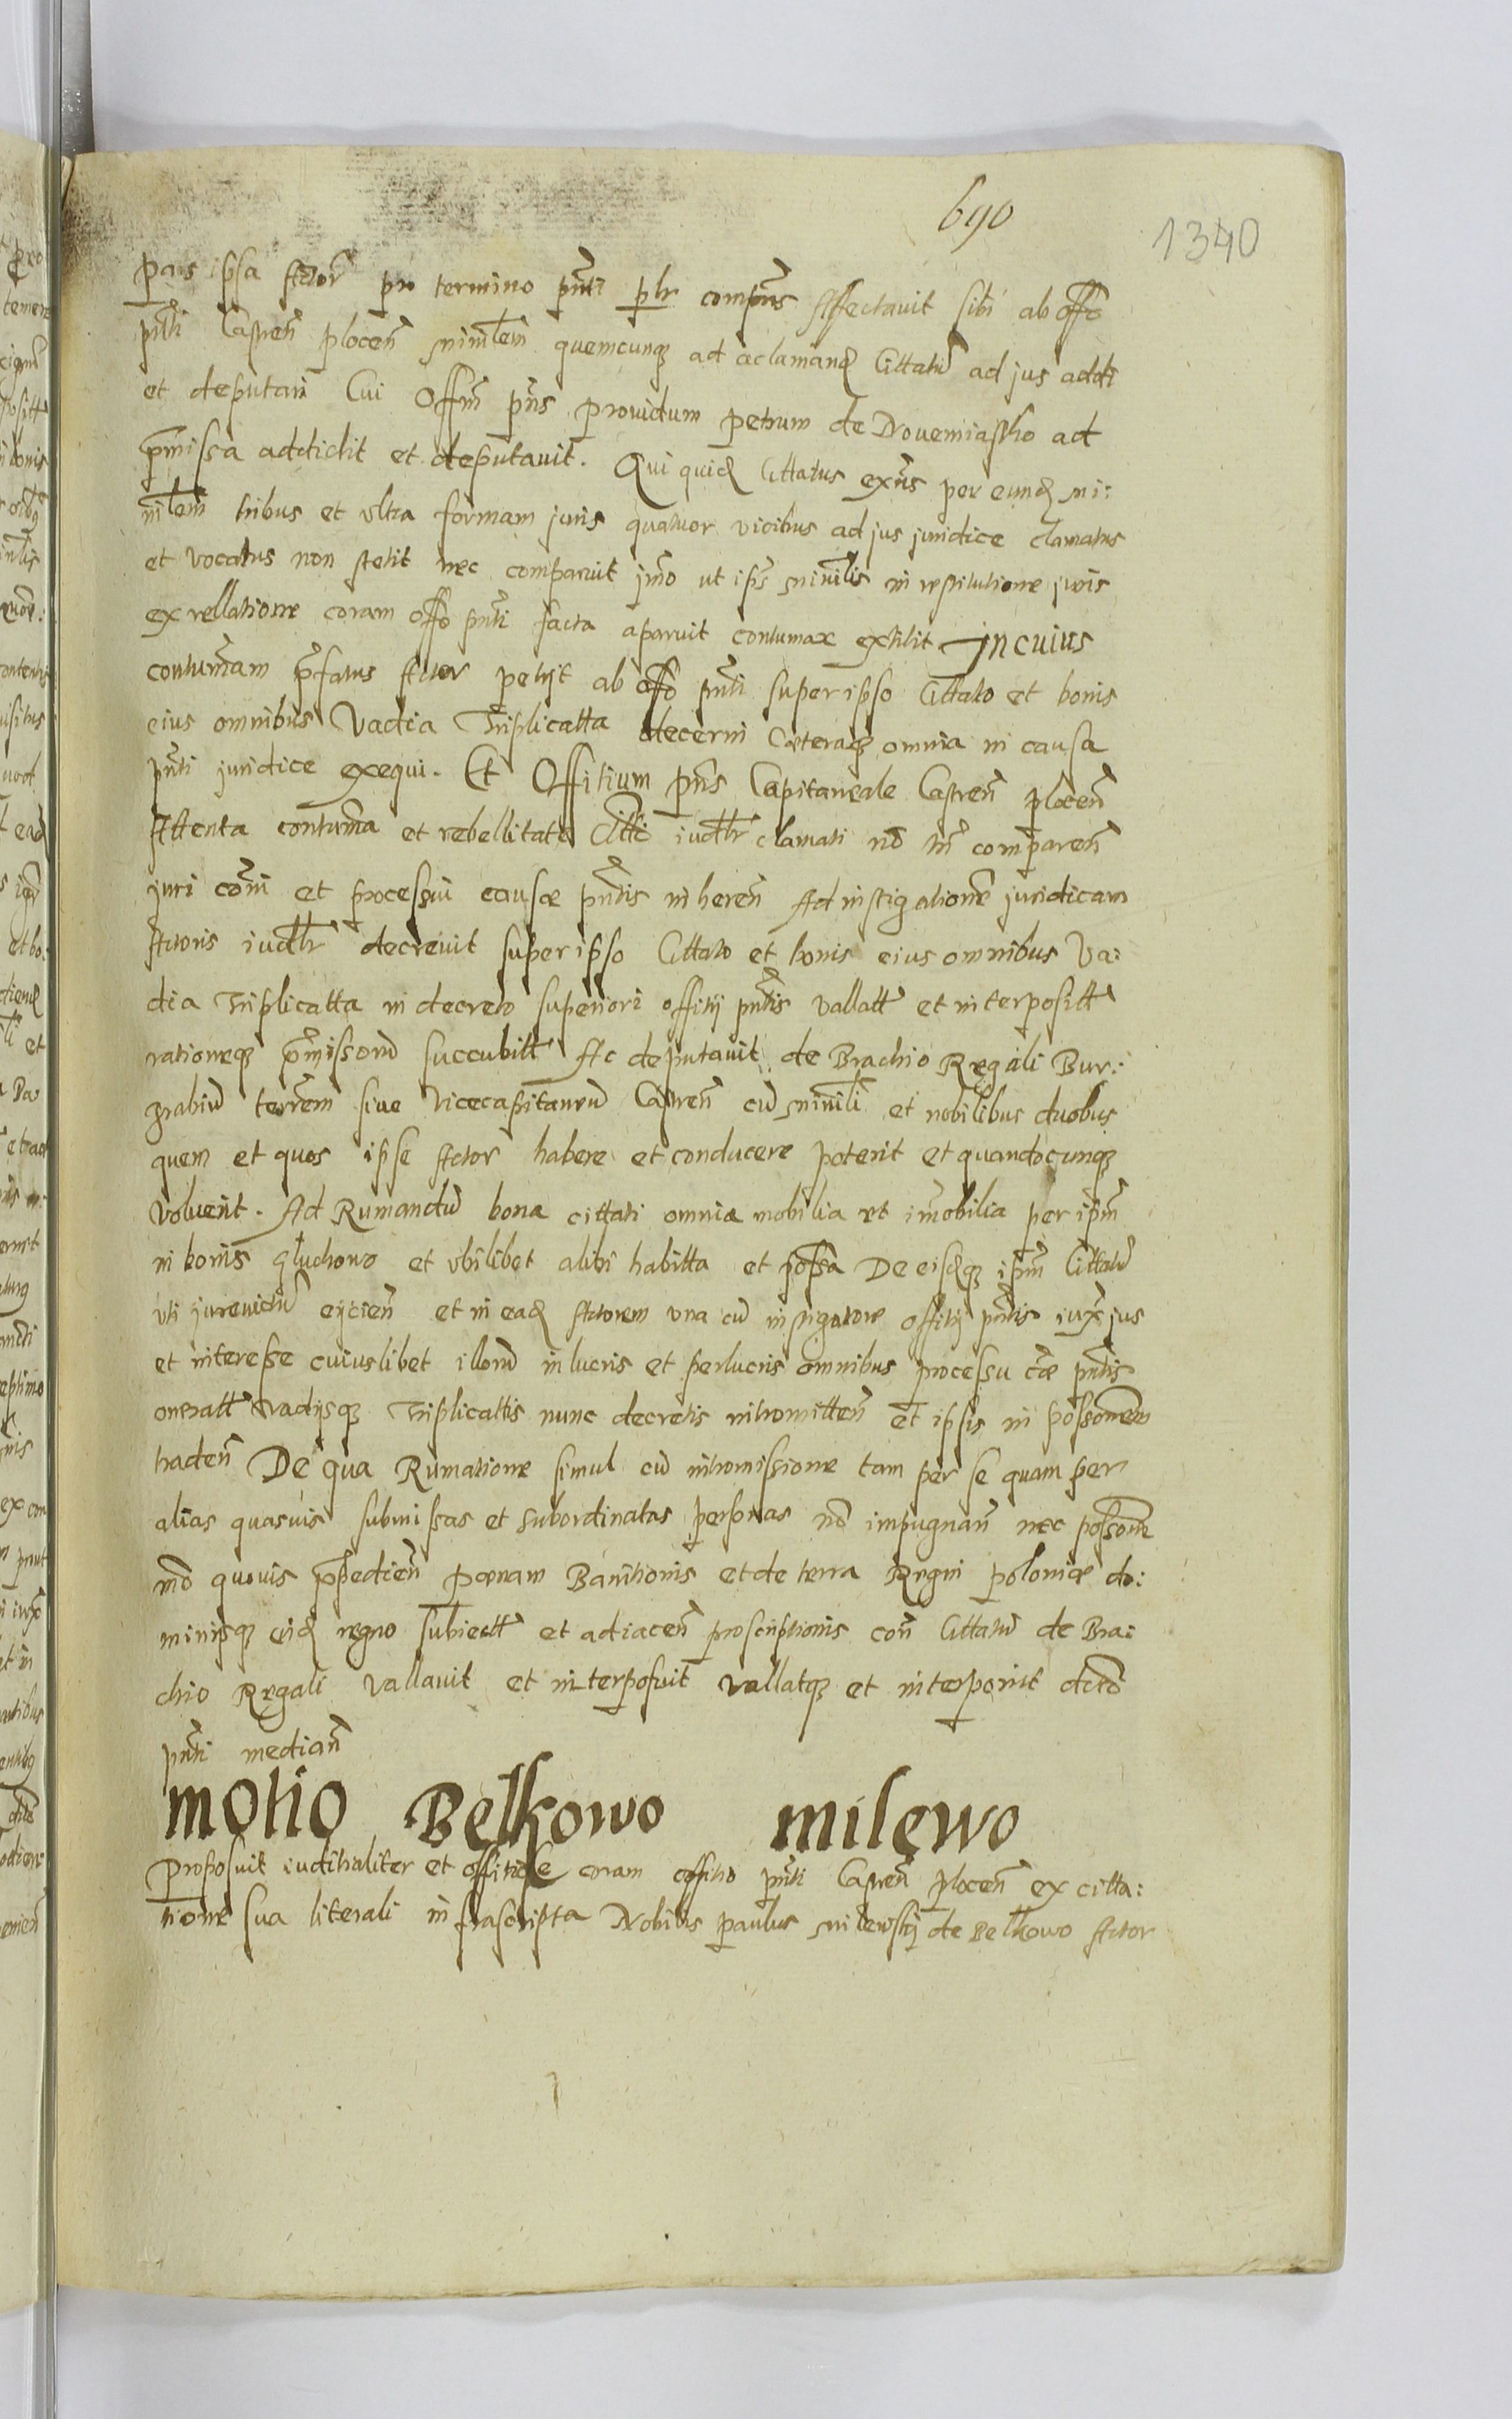 690
1340
pars ipsa Actor pro termino pnti plr compns Affectavit sibi ab offo
pnti Castren plocen minrlem quemcunq ad aclamand Cittatu ad jus addi
et deputari Cui Offm pns providum petrum de Novemiastko ad
pmissa addidit et deputavit. Qui quid Cittatus exns per eund mi:
nrlem tribus et ultra formam juris quatuor vicibus ad jus juridice clamatus
et vocatus non stetit nec comparuit jmo ut ips minrlis in restitutione juris
ex rellatione coram offo pnti facta aparuit contumax extitit Jn cuius
contumam pfatus Actor petijt ab offo pnti super ipso Cittato et bonis
eius omnibus Vadia Triplicatta decerni Cæteraq omnia in causa
pnti juridice exequi. Et Offitium pns Capitaneale Castren plocen
Attenta contuma et rebellitate Citti iudlr clamati no tn comparen
juri coni et processui causæ pntis inheren Ad instigatione juridicam
Actoris iudlr decrevit super ipso Cittato et bonis eius omnibus Va:
dia Triplicatta in decreto superiori offitij pntis vallatt et interpositt
rationeq pmissoru succubitt Ac deputavit de Brachio Regali Bur:
grabiu terrem sive Vicecapitaneu Castren cu minrli et nobilibus duobus
quem et quos ipse Actor habere et conducere poterit et quandocunq
voluerit. Ad Rumandu bona cittati omnia mobilia et imobilia per ipm
in bonis gluchowo et ubilibet alibi habitta et possa De eisdq ipm Cittatu
uti jurevictu eijcien et in ead Actorem una cu instigatore offitij pntis iuxt jus
et interesse cuiuslibet illoru in lucris et perlucris omnibus processu cæ pntis
oneratt vadijsq Triplicattis nunc decretis intromitten et ipsis in possonem
traden De qua Rumatione simul cu intromissione tam per se quam per
alias quasvis submissas et subordinatas personas no impugnan nec possone
mo quovis ppedien pœnam Banitionis et de terra Regni poloniæ do:
minijsq eid regno subiectt et adiacen proscriptionis con Cittatu de Bra:
chio Regali vallavit et interposuit vallatq et interponit dcto
pnti median
motio Belkowo milewo
Proposuit iuditialiter et offitiose coram offitio pnti Castren plocen ex citta:
tione sua literali infrascripta Nobilis paulus milewskij de Belkowo Actor